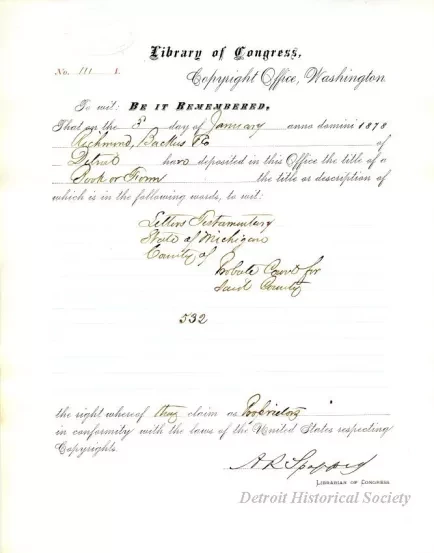 Library of Congress,
No. 111 I.
Copyright Office, Washington.
To wit: BE IT REMEMBERED,
That on the 3d day of January anno domini 1878
Richmond, Backus & Co of
Detroit have deposited in this Office the title of a
Book or Form the title or description of
which is in the following words, to wit:
Letters Testamentary
State of Michigan
County of
Probate Court for
said County
532
the right whereof they claim as Proprietors
in conformity with the laws of the United States respecting
Copyrights.
A R Spofford
LIBRARIAN OF CONGRESS
Detroit Historical Society